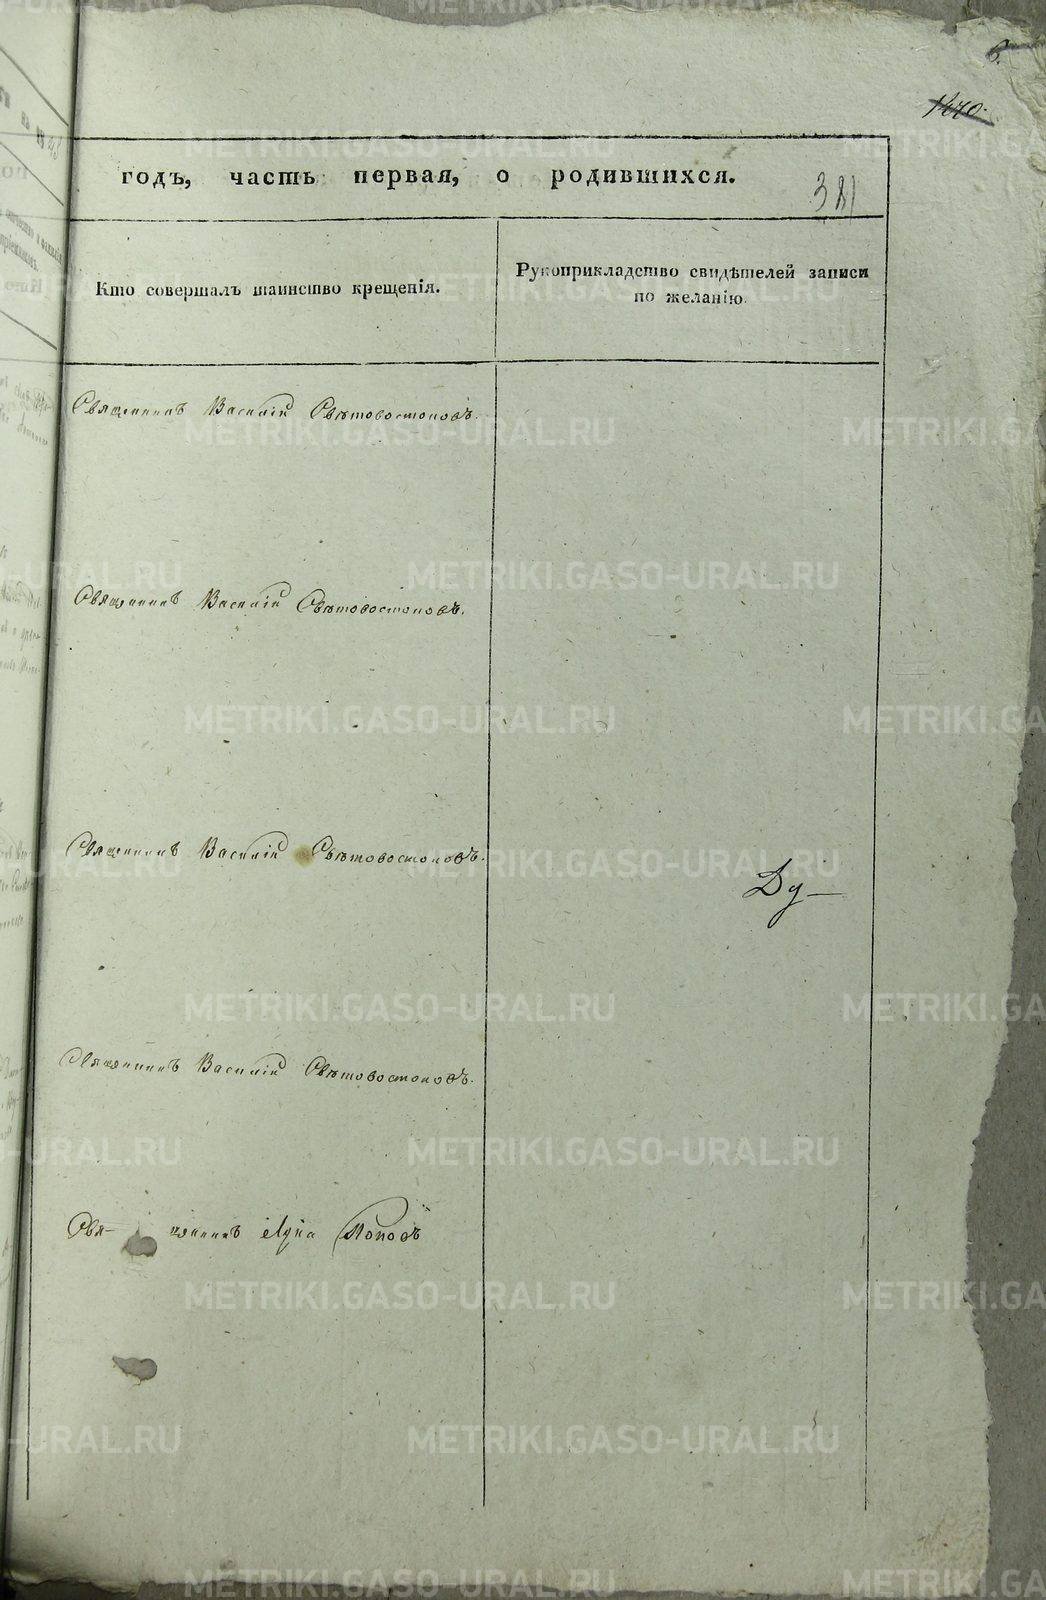 6.
1440.
годъ, часть первая, о родившихся.
381
Кто совершалъ таинство крещенія.
Рукоприкладство свидѣтелей записи
по желанію.
Священникъ Василій Свѣтовостоковъ.
Священникъ Василій Свѣтовостоковъ.
Священникъ Василій Свѣтовостоковъ.
Ду—
Священникъ Василій Свѣтовостоковъ.
Свя- щенникъ Попов
METRIKI.GASO-URAL.RU